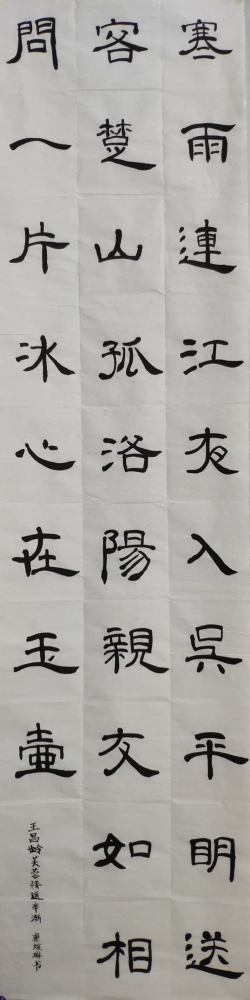 寒雨連江夜入吳平明送
客楚山孤洛陽親友如相
問一片冰心在玉壺
王昌龄芙蓉楼送辛渐 书